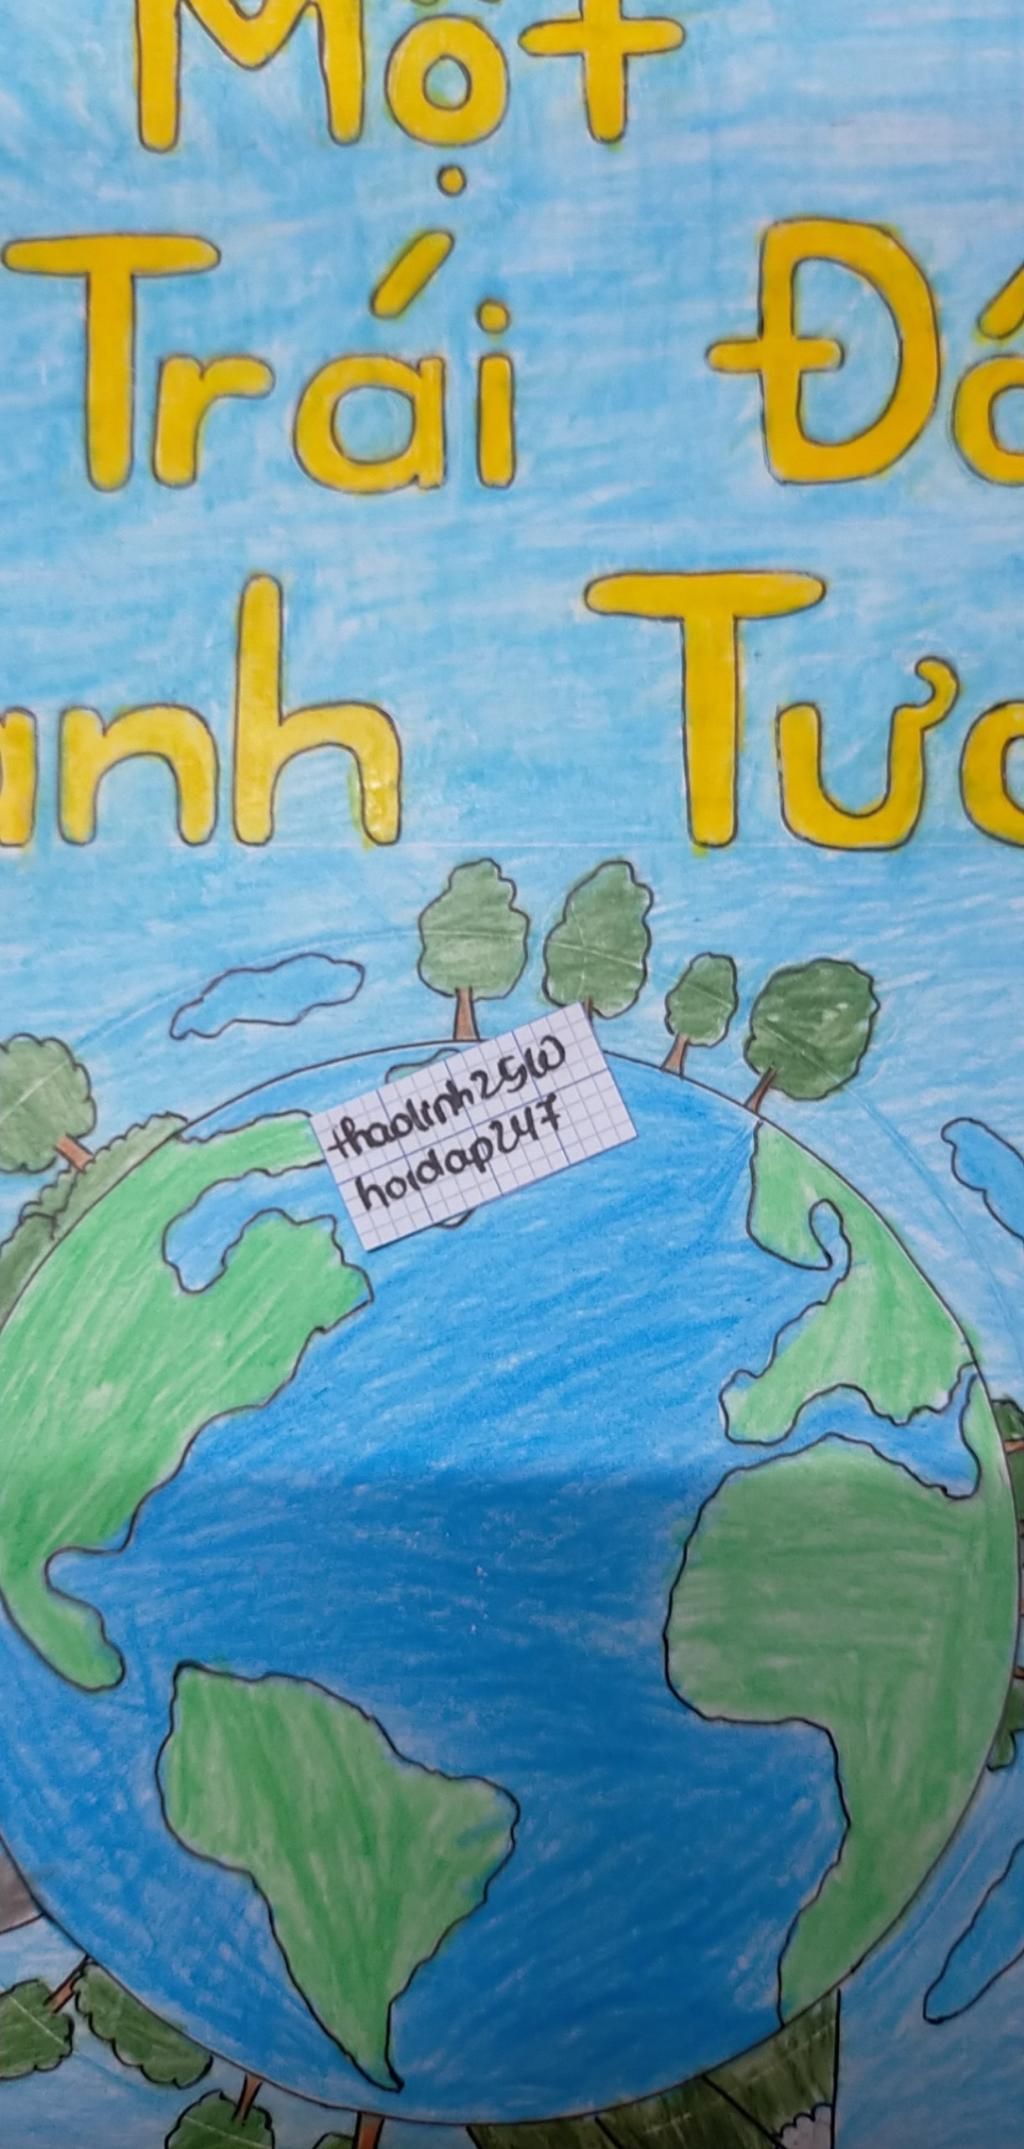 Một
Trái Đấ
anh Tươ
thaolinh2510
hoidap247